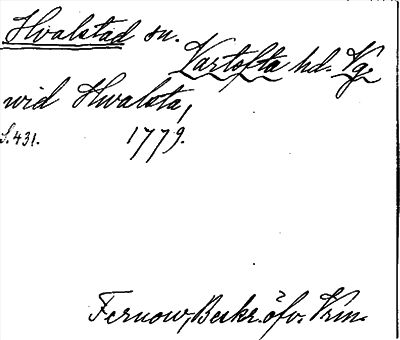 Hvalstad sn.
Vartofta hd. Vg.
wid Hwalsta,
S. 431. 1779.
Fernow, Beskr. öfv. Vrm.